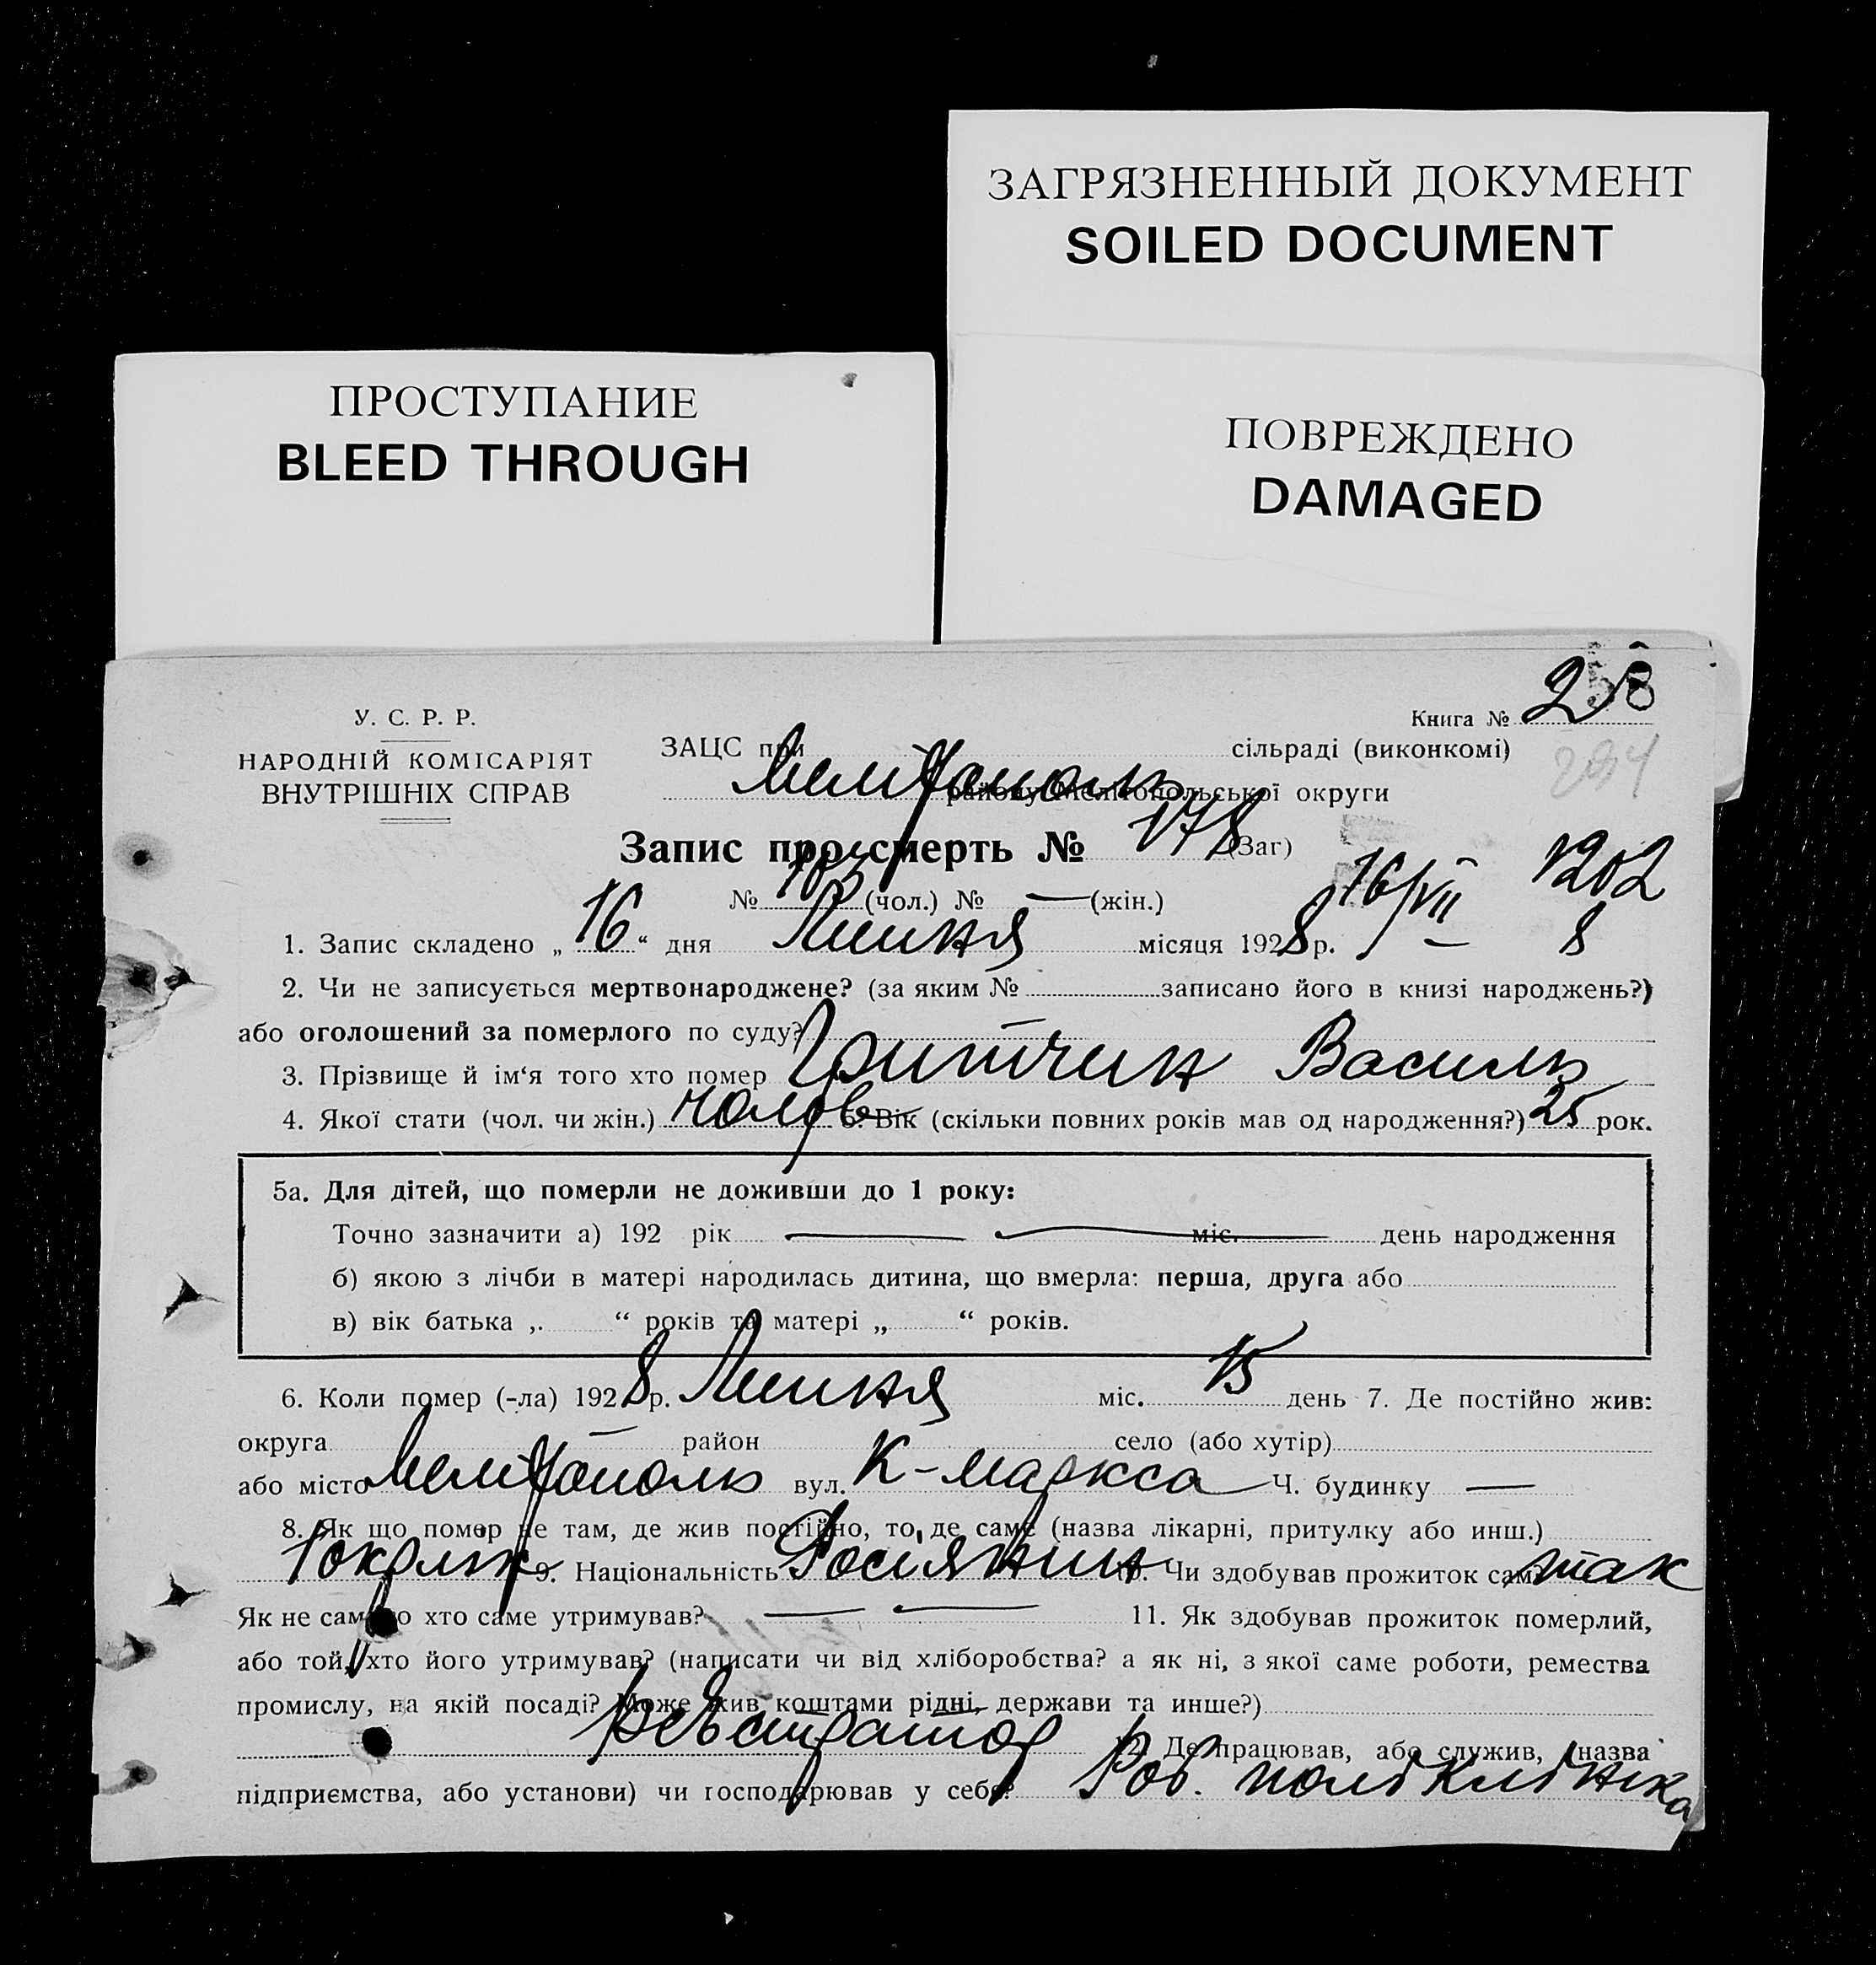 ЗАГРЯЗНЕННЫЙ ДОКУМЕНТ
SOILED DOCUMENT
ПРОСТУПАНИЕ
BLEED THROUGH
ПОВРЕЖДЕНО
DAMAGED
У. С. Р. Р.
НАРОДНІЙ КОМІСАРІЯТ
ВНУТРІШНІХ СПРАВ
Книга № 2
58
ЗАЦС при Мелітополь сільраді (виконкомі)
району Мелітопольської округи
294
Запис про смерть № 178 (Заг)
№ 103 (чол.) № — (жін.)
16/VII 8
1202
1. Запис складено „ 16 “ дня Липня місяця 1928 р.
2. Чи не записується мертвонароджене? (за яким № записано його в книзі народжень?)
або оголошений за померлого по суду? —
3. Прізвище й ім‘я того хто помер Гритчин Василь
4. Якої стати (чол. чи жін.) чолов 5. Вік (скільки повних років мав од народження?) 25 рок.
5а. Для дітей, що померли не доживши до 1 року:
Точно зазначити а) 192 рік — — міс. день народження
б) якою з лічби в матері народилась дитина, що вмерла: перша, друга або
в) вік батька „ “ років та матері „ “ років.
6. Коли помер (-ла) 1928 р. Липня міс. 15 день 7. Де постійно жив:
округа — район село (або хутір)
або місто Мелітополь вул. К-маркса Ч. будинку —
8. Як що помер не там, де жив постійно, то де саме (назва лікарні, притулку або инш.)
1 окрлік 9. Національність Росіянин 10. Чи здобував прожиток сам? так
Як не сам то хто саме утримував? — — 11. Як здобував прожиток померлий,
або той, хто його утримував? (написати чи від хліборобства? а як ні, з якої саме роботи, ремества
промислу, на якій посаді? Може жив коштами рідні, держави та инше?)
реєстратор 12. Де працював, або служив, (назва
підприємства, або установи) чи господарював у себе? Роб. поліклініка